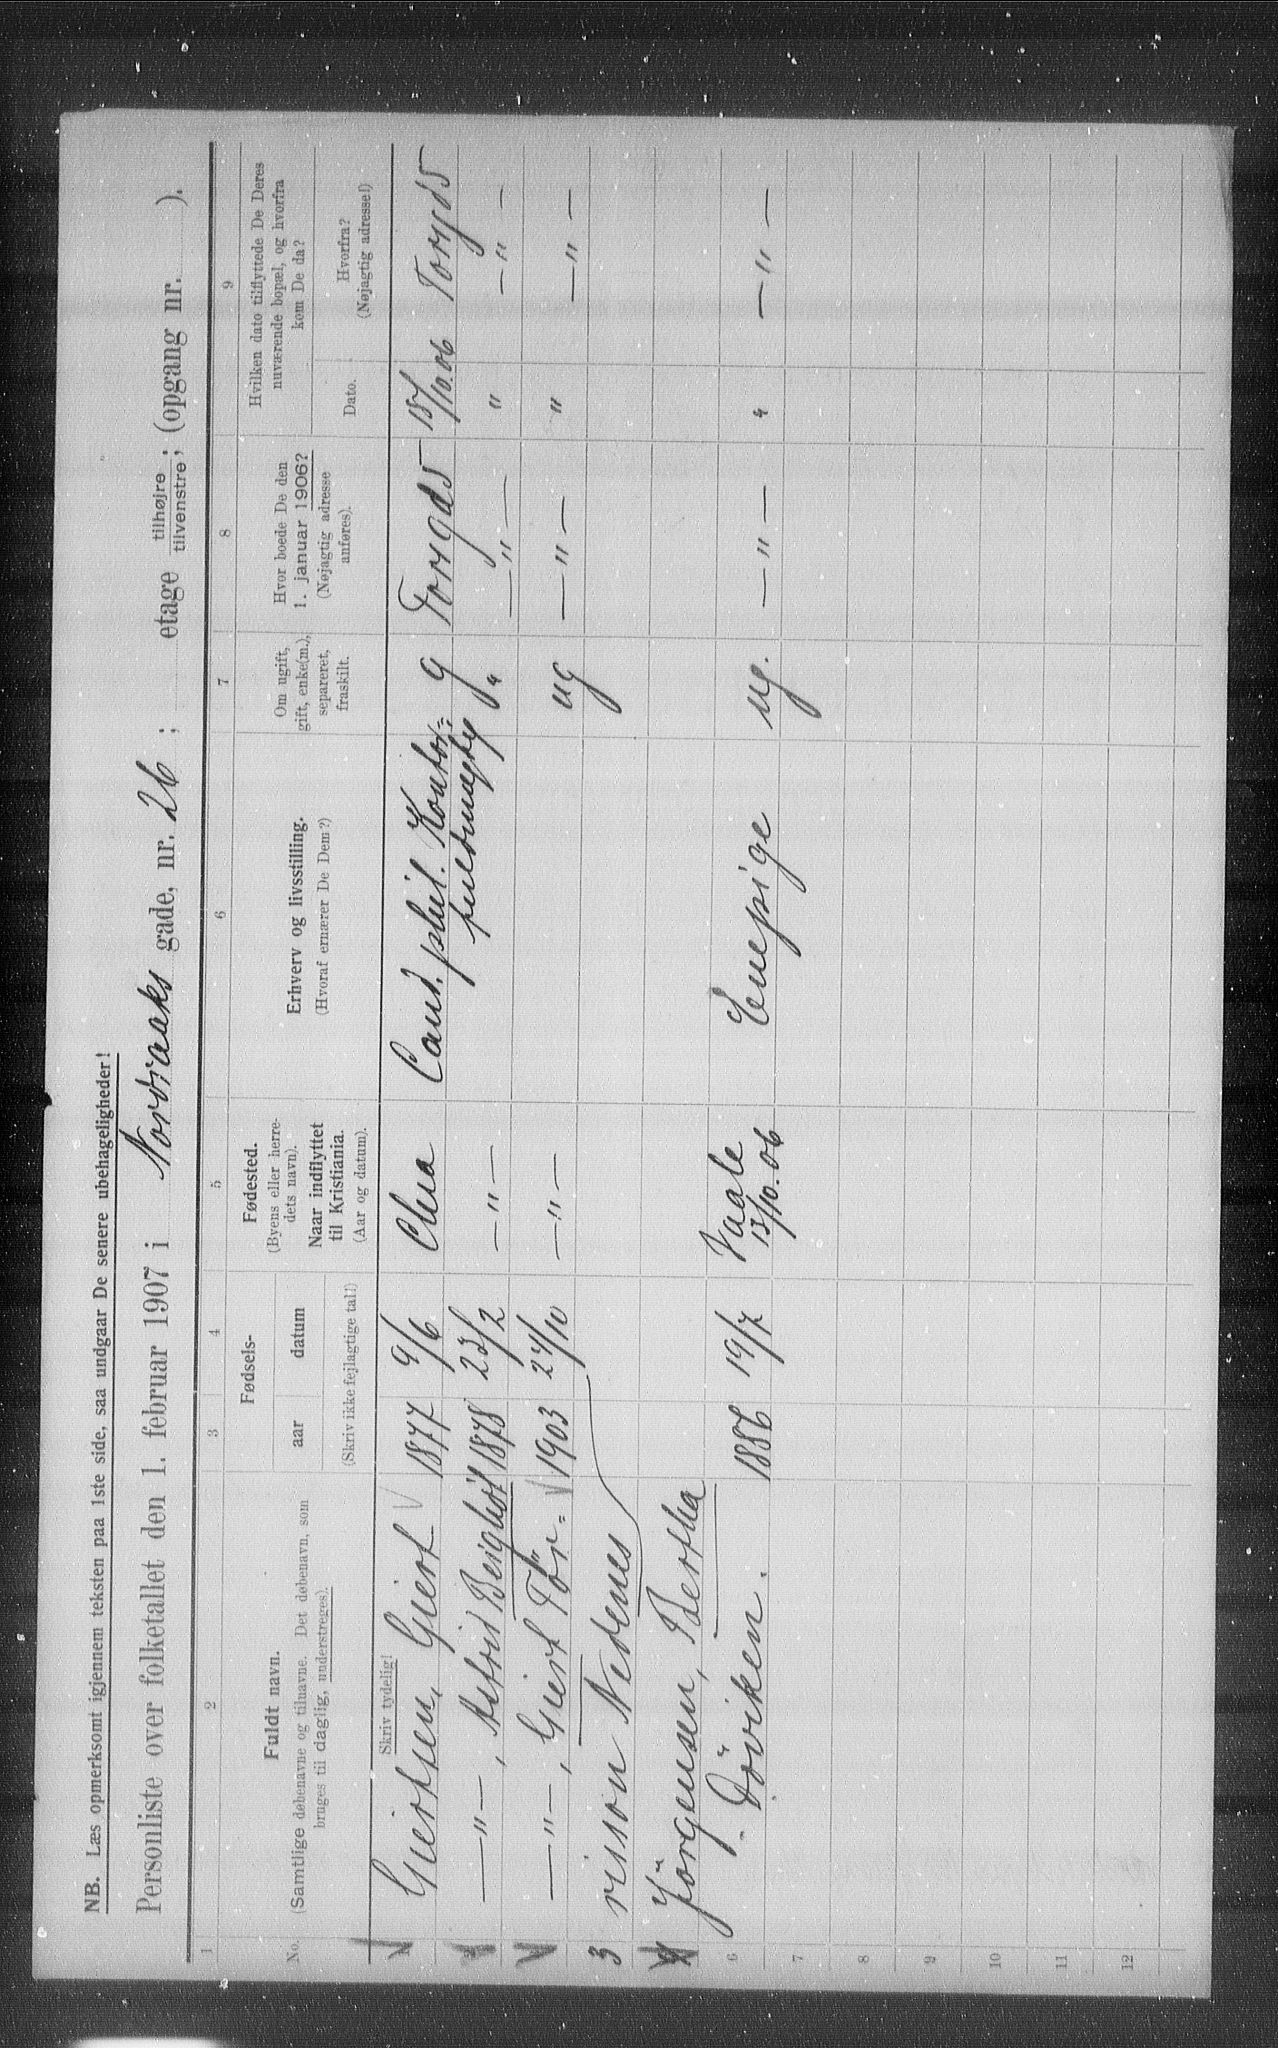 NB. Læs opmerksomt igjennem teksten paa 1ste side, saa undgaar De senere ubehageligheder!
Personliste over folketallet den 1. februar 1907 i Nordraaks gade, nr. 26; etage tilhøjre tilvenstre; (opgang nr. ).
1 2 3 4 5 6 7 8 9
No. Fuldt navn. (Samtlige døbenavne og tilnavne. Det døbenavn, som bruges til daglig, understreges).
Fødsels- aar datum
(Skriv ikke fejlagtige tal!)
Fødested. (Byens eller herredets navn). Naar indflyttet til Kristiania. (Aar og datum).
Erhverv og livsstilling. (Hvoraf ernærer De Dem?)
Om ugift, gift, enke(m.), separeret, fraskilt.
Hvor boede De den 1. januar 1906? (Nøjagtig adresse anføres).
Hvilken dato tilflyttede De Deres nuværende bopæl, og hvorfra kom De da?
Dato. Hvorfra? (Nøjagtig adresse!)
Skriv tydelig!
Giertsen, Giert 1877 9/6 Chra Cand. phil. Kontor= g Torvgd 5 15/10.06 Torvgd 5
fuldmægtig
—"—, Astrid 1878 23/2 —"— " —"— " —"—
—"—, Giert Tör= 1903 24/10 —"— ug —"— " —"—
3 risson Nedenes
Jörgensen, Bertha
6 Döviken. 1886 19/7 Vaale 13/10.06 Enepige ug. —"— " —"—
7
8
9
10
11
12